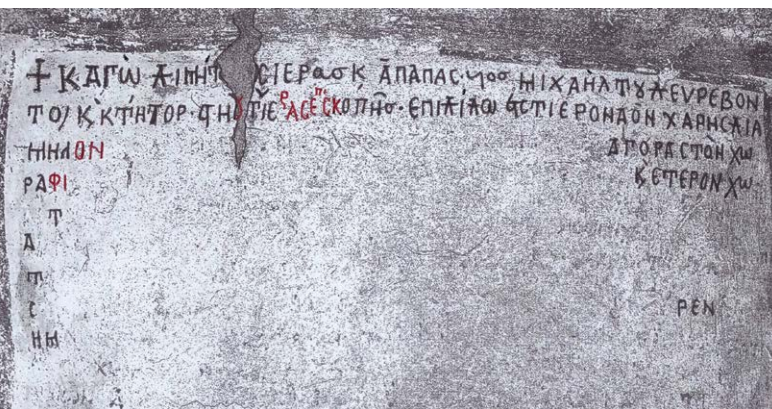 + ΚΑΓῺ ΔΙΜΗΤ CΙΕΡασ Κ ἈΠΑΠΑC. υοσ ΜΙΧΑΗΛ ΤΥ ΛΕΥΡΕΒΟΝ
ΤΟΥ Κ̀ ΚΤΗΤΟΡ · ΤΙΕΡΑCΕΠCΚΟΠΗσ · ΕΠΙΔΙΔΩ CΤΙΕΡΟΝ ΝΑΟΝ ΧΑΡΗC ΔΙΑ
ΜΗΛΟΝ ΑΓΟΡΑCΤΟΝ ΧΩ
ΡΑΦΙ Κ̀ ΕΤΕΡΟΝ ΧΩ
Τ
Α
Τ
C ΡΕΝ
ΗΜ